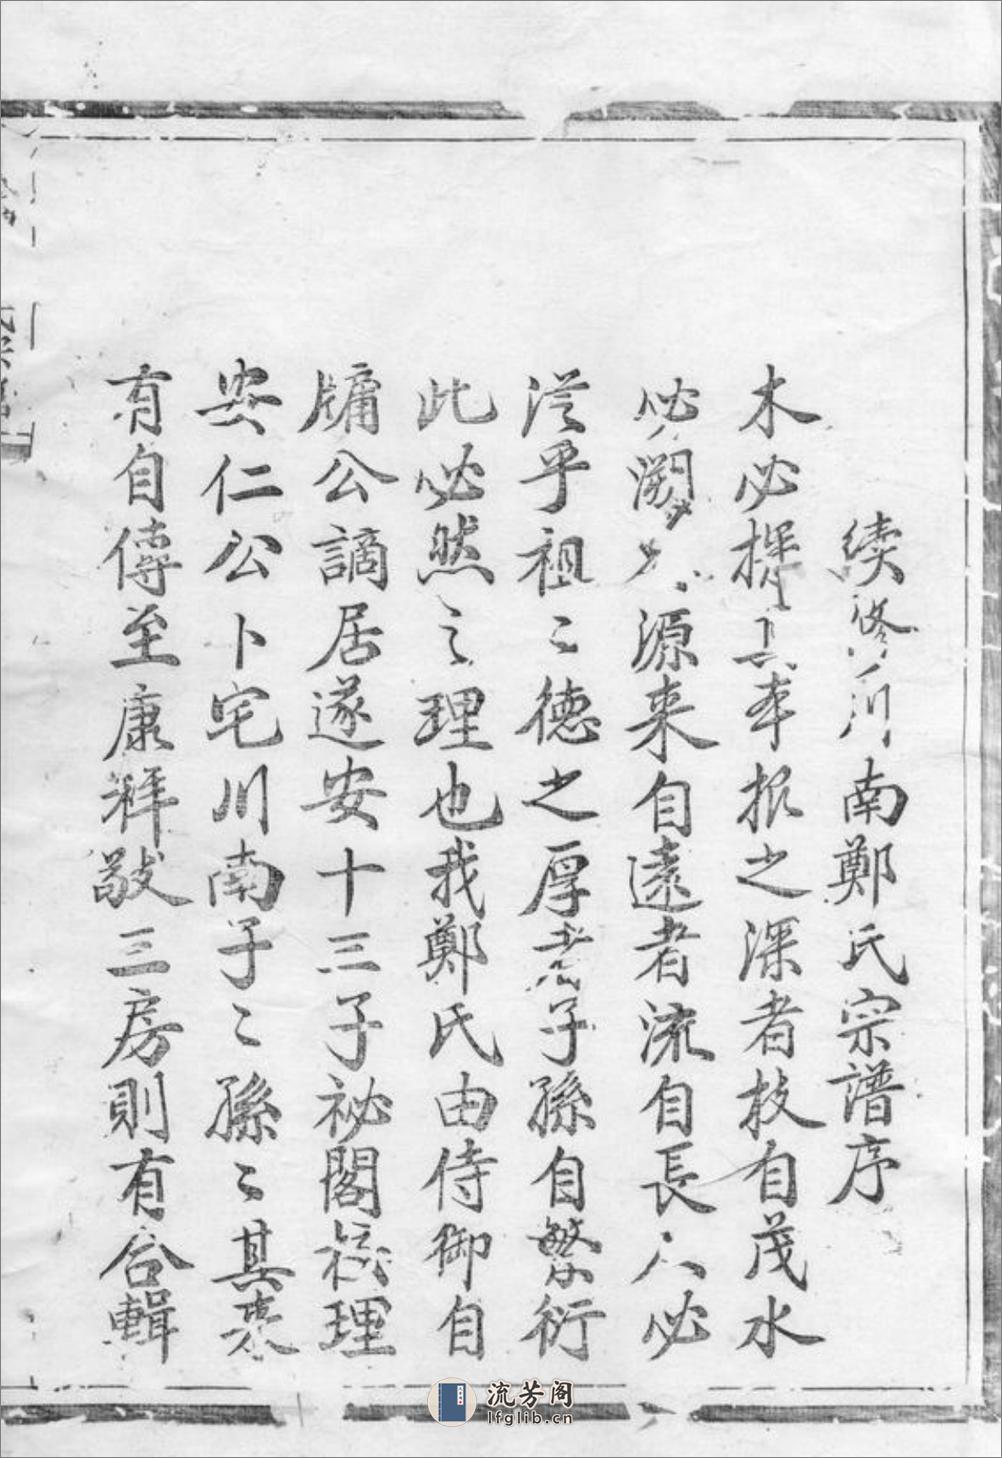 续修川南鄭氏宗譜序
木必探其本抵之深者枝自茂水
必溯源来自遠者流自長人必
従乎祖〻德之厚者子孫自繁衍
此必然之理也我鄭氏由侍御自
牗公謫居遂安十三子祕閣校理
安仁公卜宅川南子〻孫〻其来
有自傳至康釋敬三房則有合輯
流芳阁
lfglib.cn